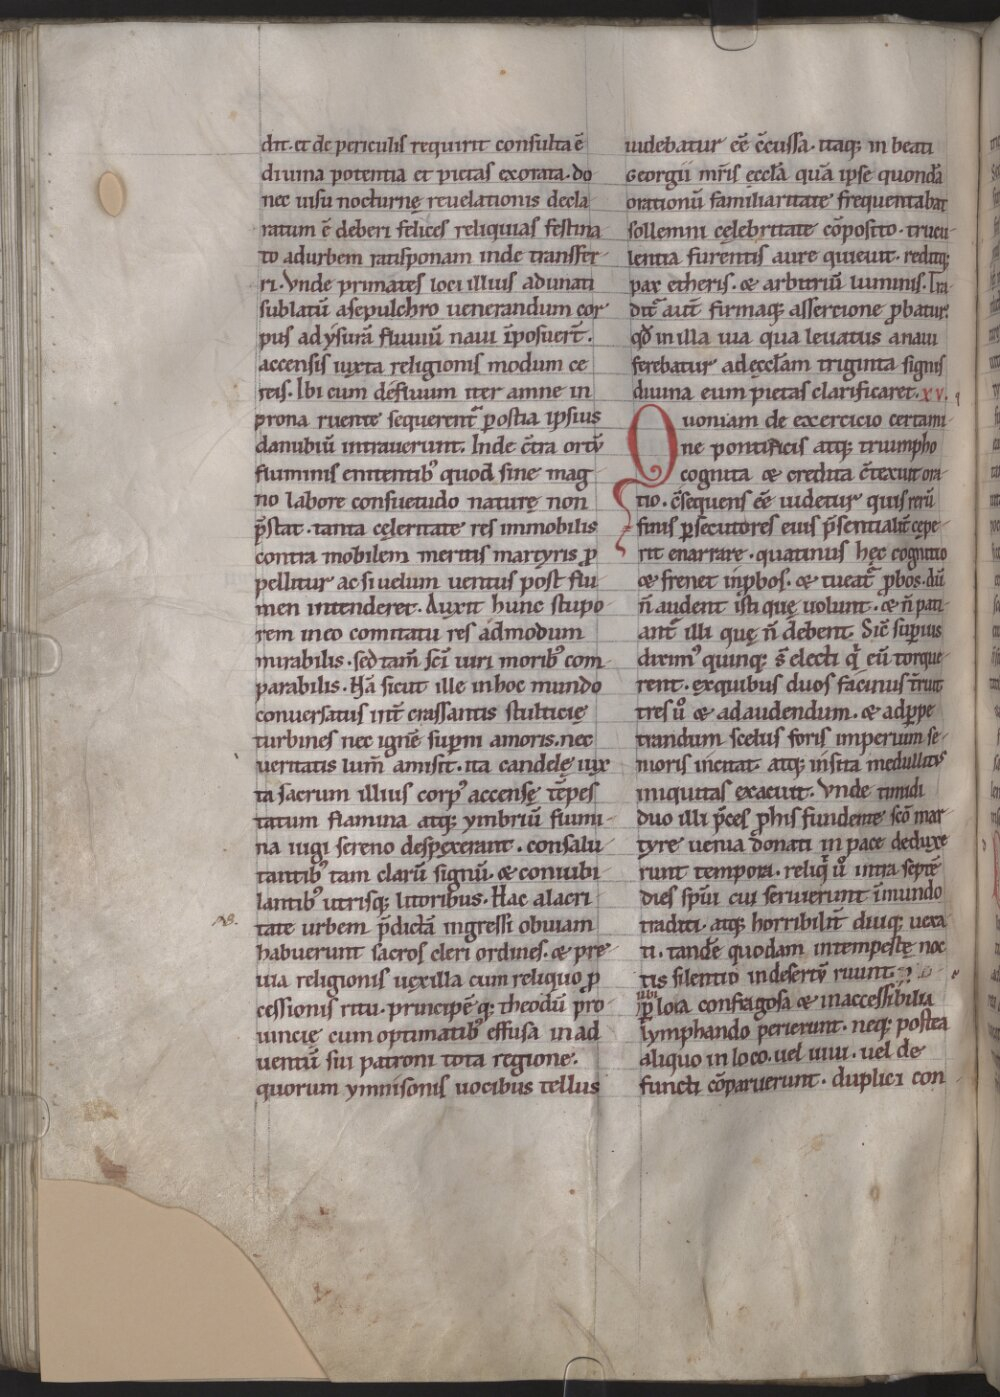 dit. et de periculis requirit consulta ē
diuina potentia et pietas exorata. do
nec uisu nocturnę reuelationis decla
ratum ē deberi felices reliquias festina
to adurbem ratisponam inde transfer-
ri. Vnde primates loci illius adunati
sublatū asepulchro uenerandum cor-
pus adysurā fluuiū naui īposuer̄t.
accensis iuxta religionis modum ce
reis. Ibi cum defluum iter amne in
prona ruente sequerent̄ postia ipsius
danubiū intrauerunt. Inde c̄tra ortū
fluminis enitentib; quod sine mag-
no labore consuetudo naturę non
p̄stat. tanta cęleritate res immobilis
contra mobilem meritis martyris ꝓ
pellitur ac si uelum uentus post flu-
men intenderet. Auxit hunc stupo-
rem in eo comitatu res admodum
mirabilis. sed tam̄ sc̄i uiri morib; com-
parabilis. Nā sicut ille in hoc mundo
conuersatus int̄ crassantis stulticię
turbines nec ignē superni amoris. nec
ueritatis lum̄ amisit. ita candelę iux
ta sacrum illius corp; accensę tēpes
tatum flamina atq; ymbriū flumi-
na iugi sereno despexerant. consalu-
tantib; tam clarū signū. & conuibi-
lantib; utrisq; litoribus. Hac alacri
tate urbem p̄dictā ingressi obuiam
habuerunt sacros cleri ordines. & pre-
uia religionis uęxilla cum reliquo ꝓ
cessionis ritu. principē q; theodū pro
uincię cum optimatib; effusa in ad
uentū sui patroni tota regione.
quorum ymnisonis uocibus tellus
uidebatur eē c̄cussa. itaq; in beati
Georgii mr̄is ęccl̄a quā ipse quondā
orationū familiaritate frequentabat
sollemni cęlebritate cōposito. trucu-
lentia furentis aure quieuit. rediitq;
pax etheris. & arbitriū luminis. Tra-
dit̄ aut̄ firmaq; assercione ꝓbatur.
qđ in illa uia qua leuatus anaui
ferebatur adęccl̄am triginta signis
diuina eum pietas clarificaret. xv.
Quoniam de exercicio certami-
ne pontificis atq; triumpho
cognita & credita c̄texuit ora-
tio. c̄sequens eē uidetur quis rerū
finis ꝑsecutores eius p̄sentialit̄ cępe-
rit enarrare. quatinus hęc cognitio
& frenet inꝓbos. & tueat̄ ꝓbos. dū
n̄ audent isti quę uolunt. & n̄ pati-
ant̄ illi quę n̄ debent. Sic̄ superius
dixim; quinq; s̄ electi q̄ eū torque-
rent. exquibus duos facinus t̄ruit
tres ů & adaudendum. & adꝑpe
trandum scelus foris imperium se-
nioris incitat. atq; insita medullitus
iniquitas exacuit. Vnde timidi
duo illi p̄ces ꝓ his fundente sc̄o mar-
tyre uenia donati in pace deduxe-
runt tempora. reliq̄ ů intra septē
dies sp̄ui cui seruierunt īmundo
traditi. atq; horribilit̄ diuq; uexa
ti. tandē quodam intempestę noc
tis silentio in desertū ruunt.
ubi
ꝑ loca confragosa & inaccessibilia
lymphando perierunt. neq; postea
aliquo in loco. uel uiui. uel de
functi cōparuerunt. duplici con